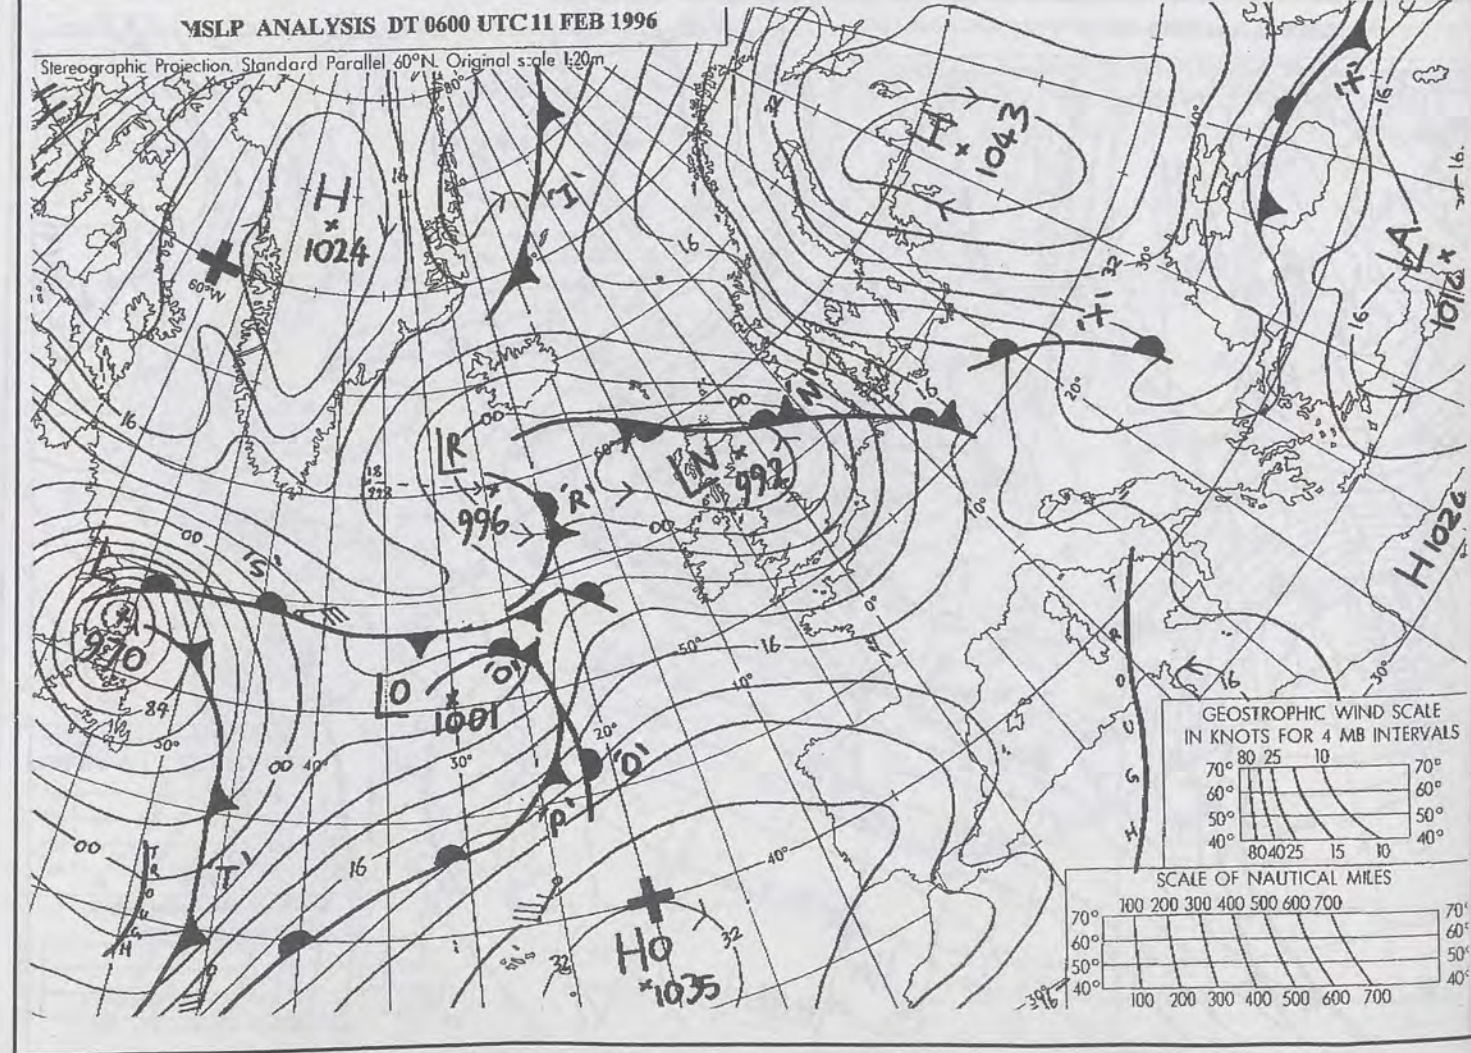 MSLP ANALYSIS DT 0600 UTC 11 FEB 1996
Stereographic Projection. Standard Parallel 60°N. Original scale 1:20m
80°
H
1024
60°W
16
16
'I'
32
H
1043
16
'X'
16
16.
LA
1016
32
30°
'X'
16
20°
16
'N'
00
00
LR
996
'R'
60°
LN
992
00
10°
H 1026
00
'S'
L
970
84
50°
LO
1001
'O'
50°
16
10°
0°
20°
'O'
'P'
00
40°
30°
TROUGH
16
30°
00
TROUGH
'T'
16
40°
HO
1035
32
32
GEOSTROPHIC WIND SCALE
IN KNOTS FOR 4 MB INTERVALS
80 25 10
70° 70°
60° 60°
50° 50°
40° 40°
80 40 25 15 10
SCALE OF NAUTICAL MILES
100 200 300 400 500 600 700
70° 70°
60° 60°
50° 50°
40° 40°
100 200 300 400 500 600 700